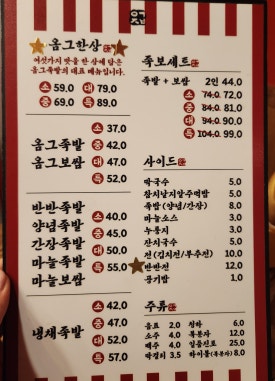 옴그한상
여섯가지 맛을 한 상에 담은
옴그족발의 대표 메뉴입니다.
소 59.0 대 79.0
중 69.0 특 89.0
옴그족발
옴그보쌈
소 37.0
중 42.0
대 47.0
특 52.0
반반족발
양념족발
간장족발
마늘족발
마늘보쌈
소 40.0
중 45.0
대 50.0
특 55.0
냉채족발
소 42.0
중 47.0
대 52.0
특 57.0
족보세트
족발 + 보쌈 2인 44.0
소 74.0 72.0
중 84.0 81.0
대 94.0 90.0
특 104.0 99.0
사이드
막국수 5.0
참치날치알주먹밥 5.0
족발(양념/간장) 8.0
마늘소스 3.0
누룽지 3.0
잔치국수 5.0
전(김치전/부추전) 10.0
반반전 12.0
공기밥 1.0
주류
음료 2.0 청하 6.0
소주 4.0 복분자 12.0
맥주 4.0 일품진로 25.0
막걸리 3.5 하이볼(복분자) 8.0